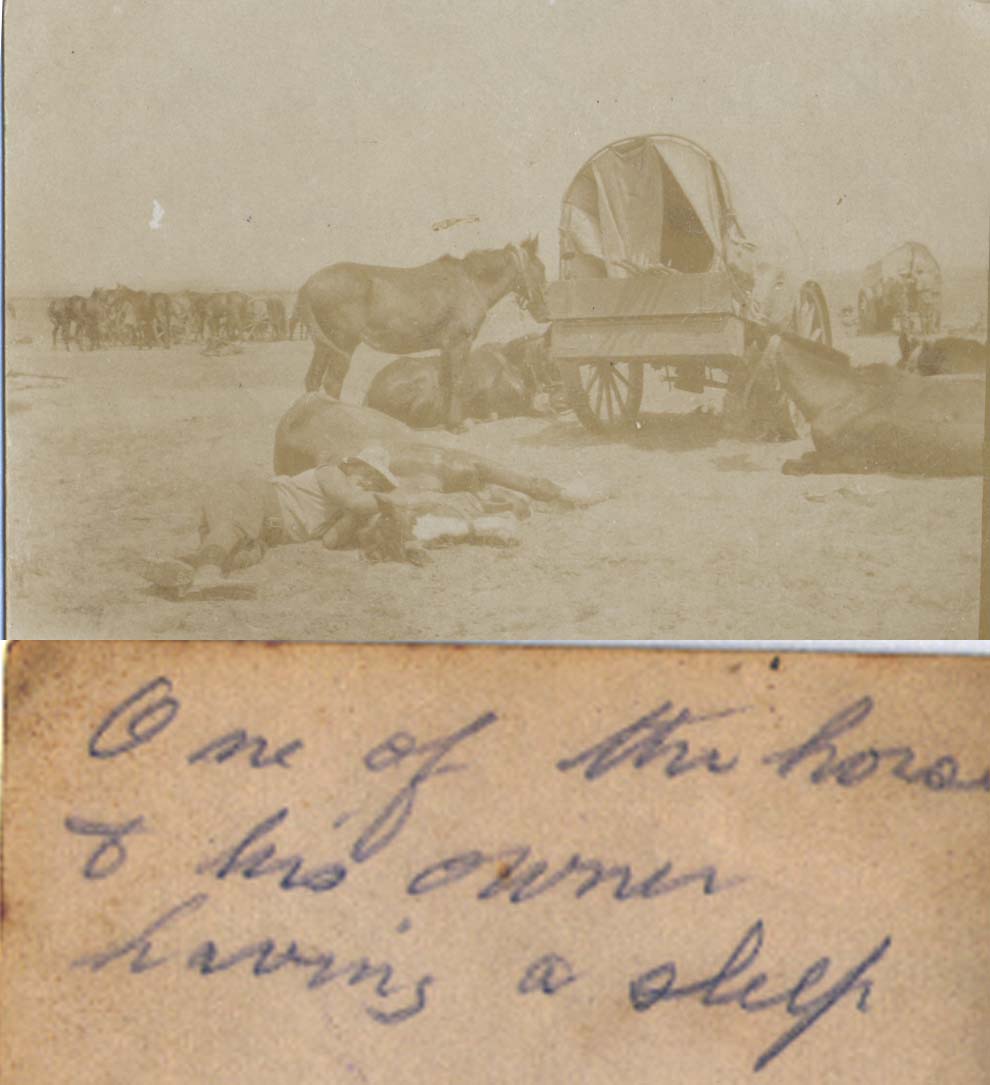 One of the horse
& his owner
having a sleep